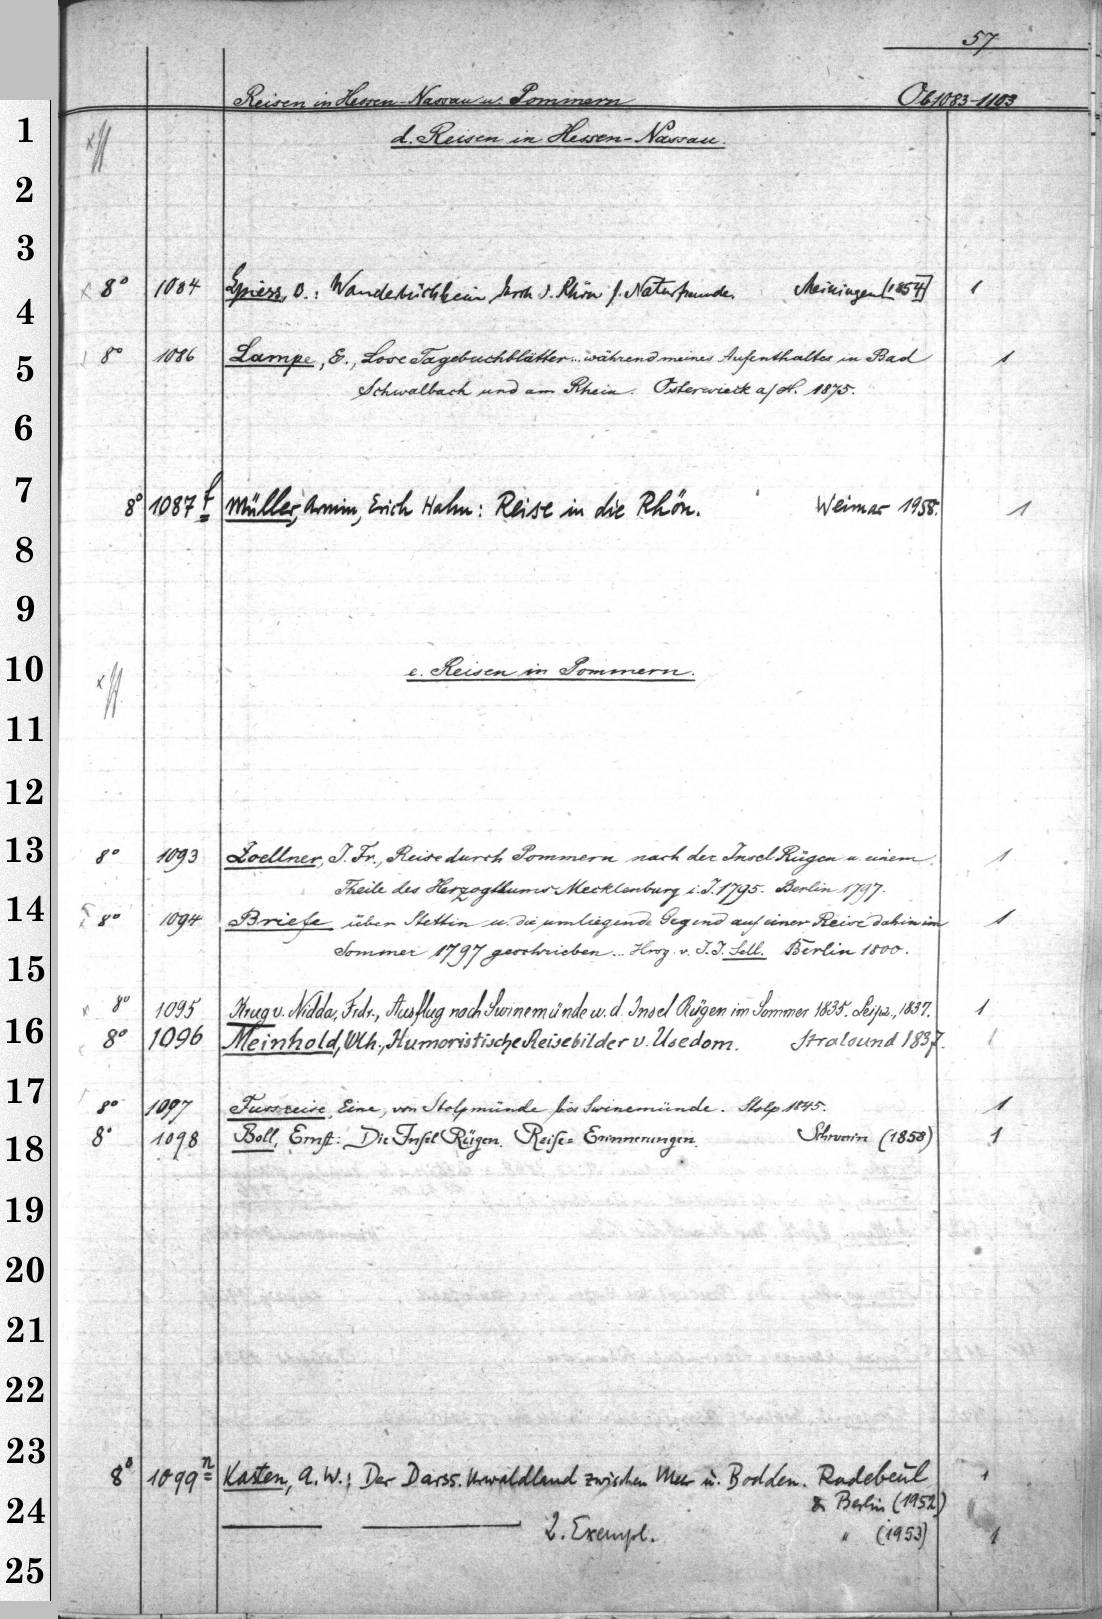 57
Reisen in Hessen-Nassau u. Pommern Ob 1083-1103
1 d. Reisen in Hessen-Nassau.
2
3
8° 1084 Spiess, O.: Wanderbüchlein durch d. Rhön f. Naturfreunde. Meiningen [1854] 1
4
5 8° 1086 Lampe, E., Lose Tagebuchblätter... während meines Aufenthaltes in Bad 1
Schwalbach und am Rhein. Osterwieck a/H. 1875.
6
7 8° 1087 f Müller, Armin, Erich Hahn: Reise in die Rhön. Weimar 1958. 1
8
9
10 e. Reisen in Pommern.
11
12
13 8° 1093 Zoellner, J. Fr., Reise durch Pommern nach der Insel Rügen u. einem 1
Theile des Herzogthums Mecklenburg i. J. 1795. Berlin 1797.
14 8° 1094 Briefe über Stettin u. die umliegende Gegend auf einer Reise dahin im 1
Sommer 1797 geschrieben... Hrsg. v. J. J. Sell. Berlin 1800.
15
8° 1095 Krug v. Nidda, Frdr., Ausflug nach Swinemünde u. d. Insel Rügen im Sommer 1835. Leipz., 1837. 1
16 8° 1096 Meinhold, Wlh., Humoristische Reisebilder v. Usedom. Stralsund 1837. 1
17 8° 1097 Fussreise, Eine, von Stolpmünde bis Swinemünde. Stolp 1845. 1
18 8° 1098 Boll, Ernst: Die Insel Rügen. Reise= Erinnerungen. Schwerin (1858) 1
19
20
21
22
23
8° 1099 n Kasten, A. W.: Der Darss. Urwaldland zwischen Meer u. Bodden. Radebeul 1
24 & Berlin (1952)
2. Exempl. " (1953) 1
25